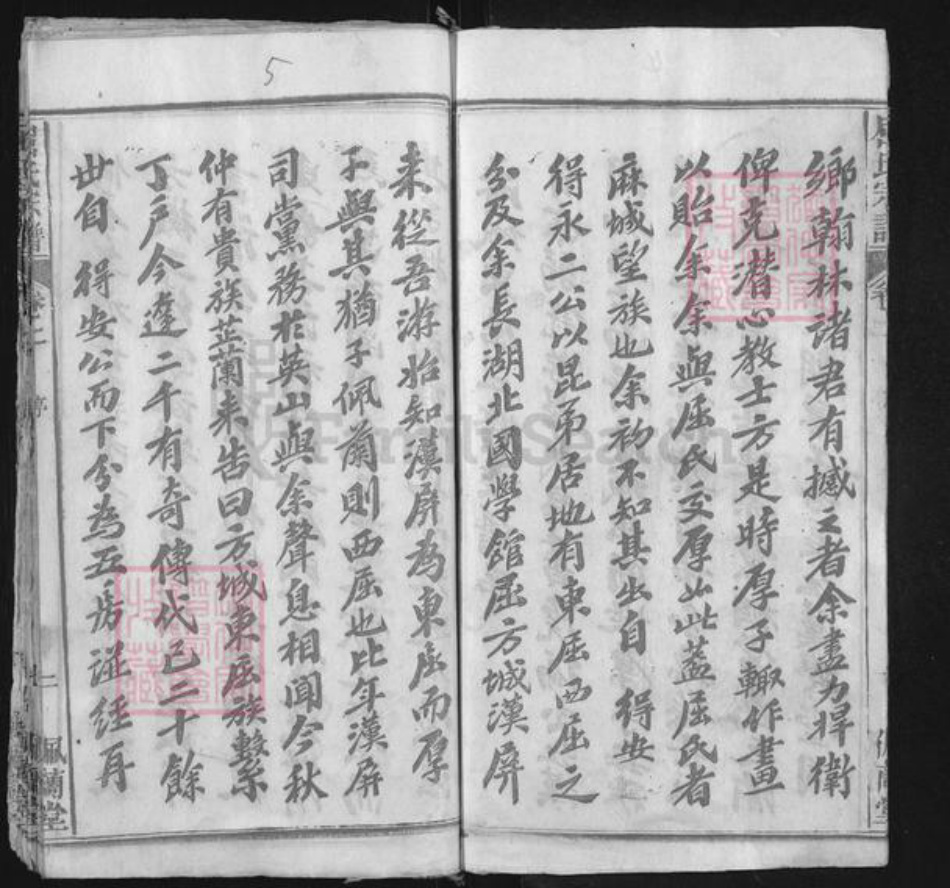 鄉翰林諸君有撼之者余盡力捍衛
俾克潛心教士方是時厚子輙作畫
以貽余余與屈氏交厚如此蓋屈氏者
麻城望族也余初不知其出自 得安
得永二公以昆弟居地有東屈西屈之
分及余長湖北國學館屈方城漢屏
来從吾游始知漢屏為東屈而厚
子與其猶子佩蘭則西屈也比年漢屏
司當黨務於英山與余聲息相聞今秋
仲有貴族芷蘭来告曰方城東屈族繫
丁戶今達二千有奇傳代已二十餘
世自 得安公而下分為五房謹經再
5
佩蘭堂
FamilySearch